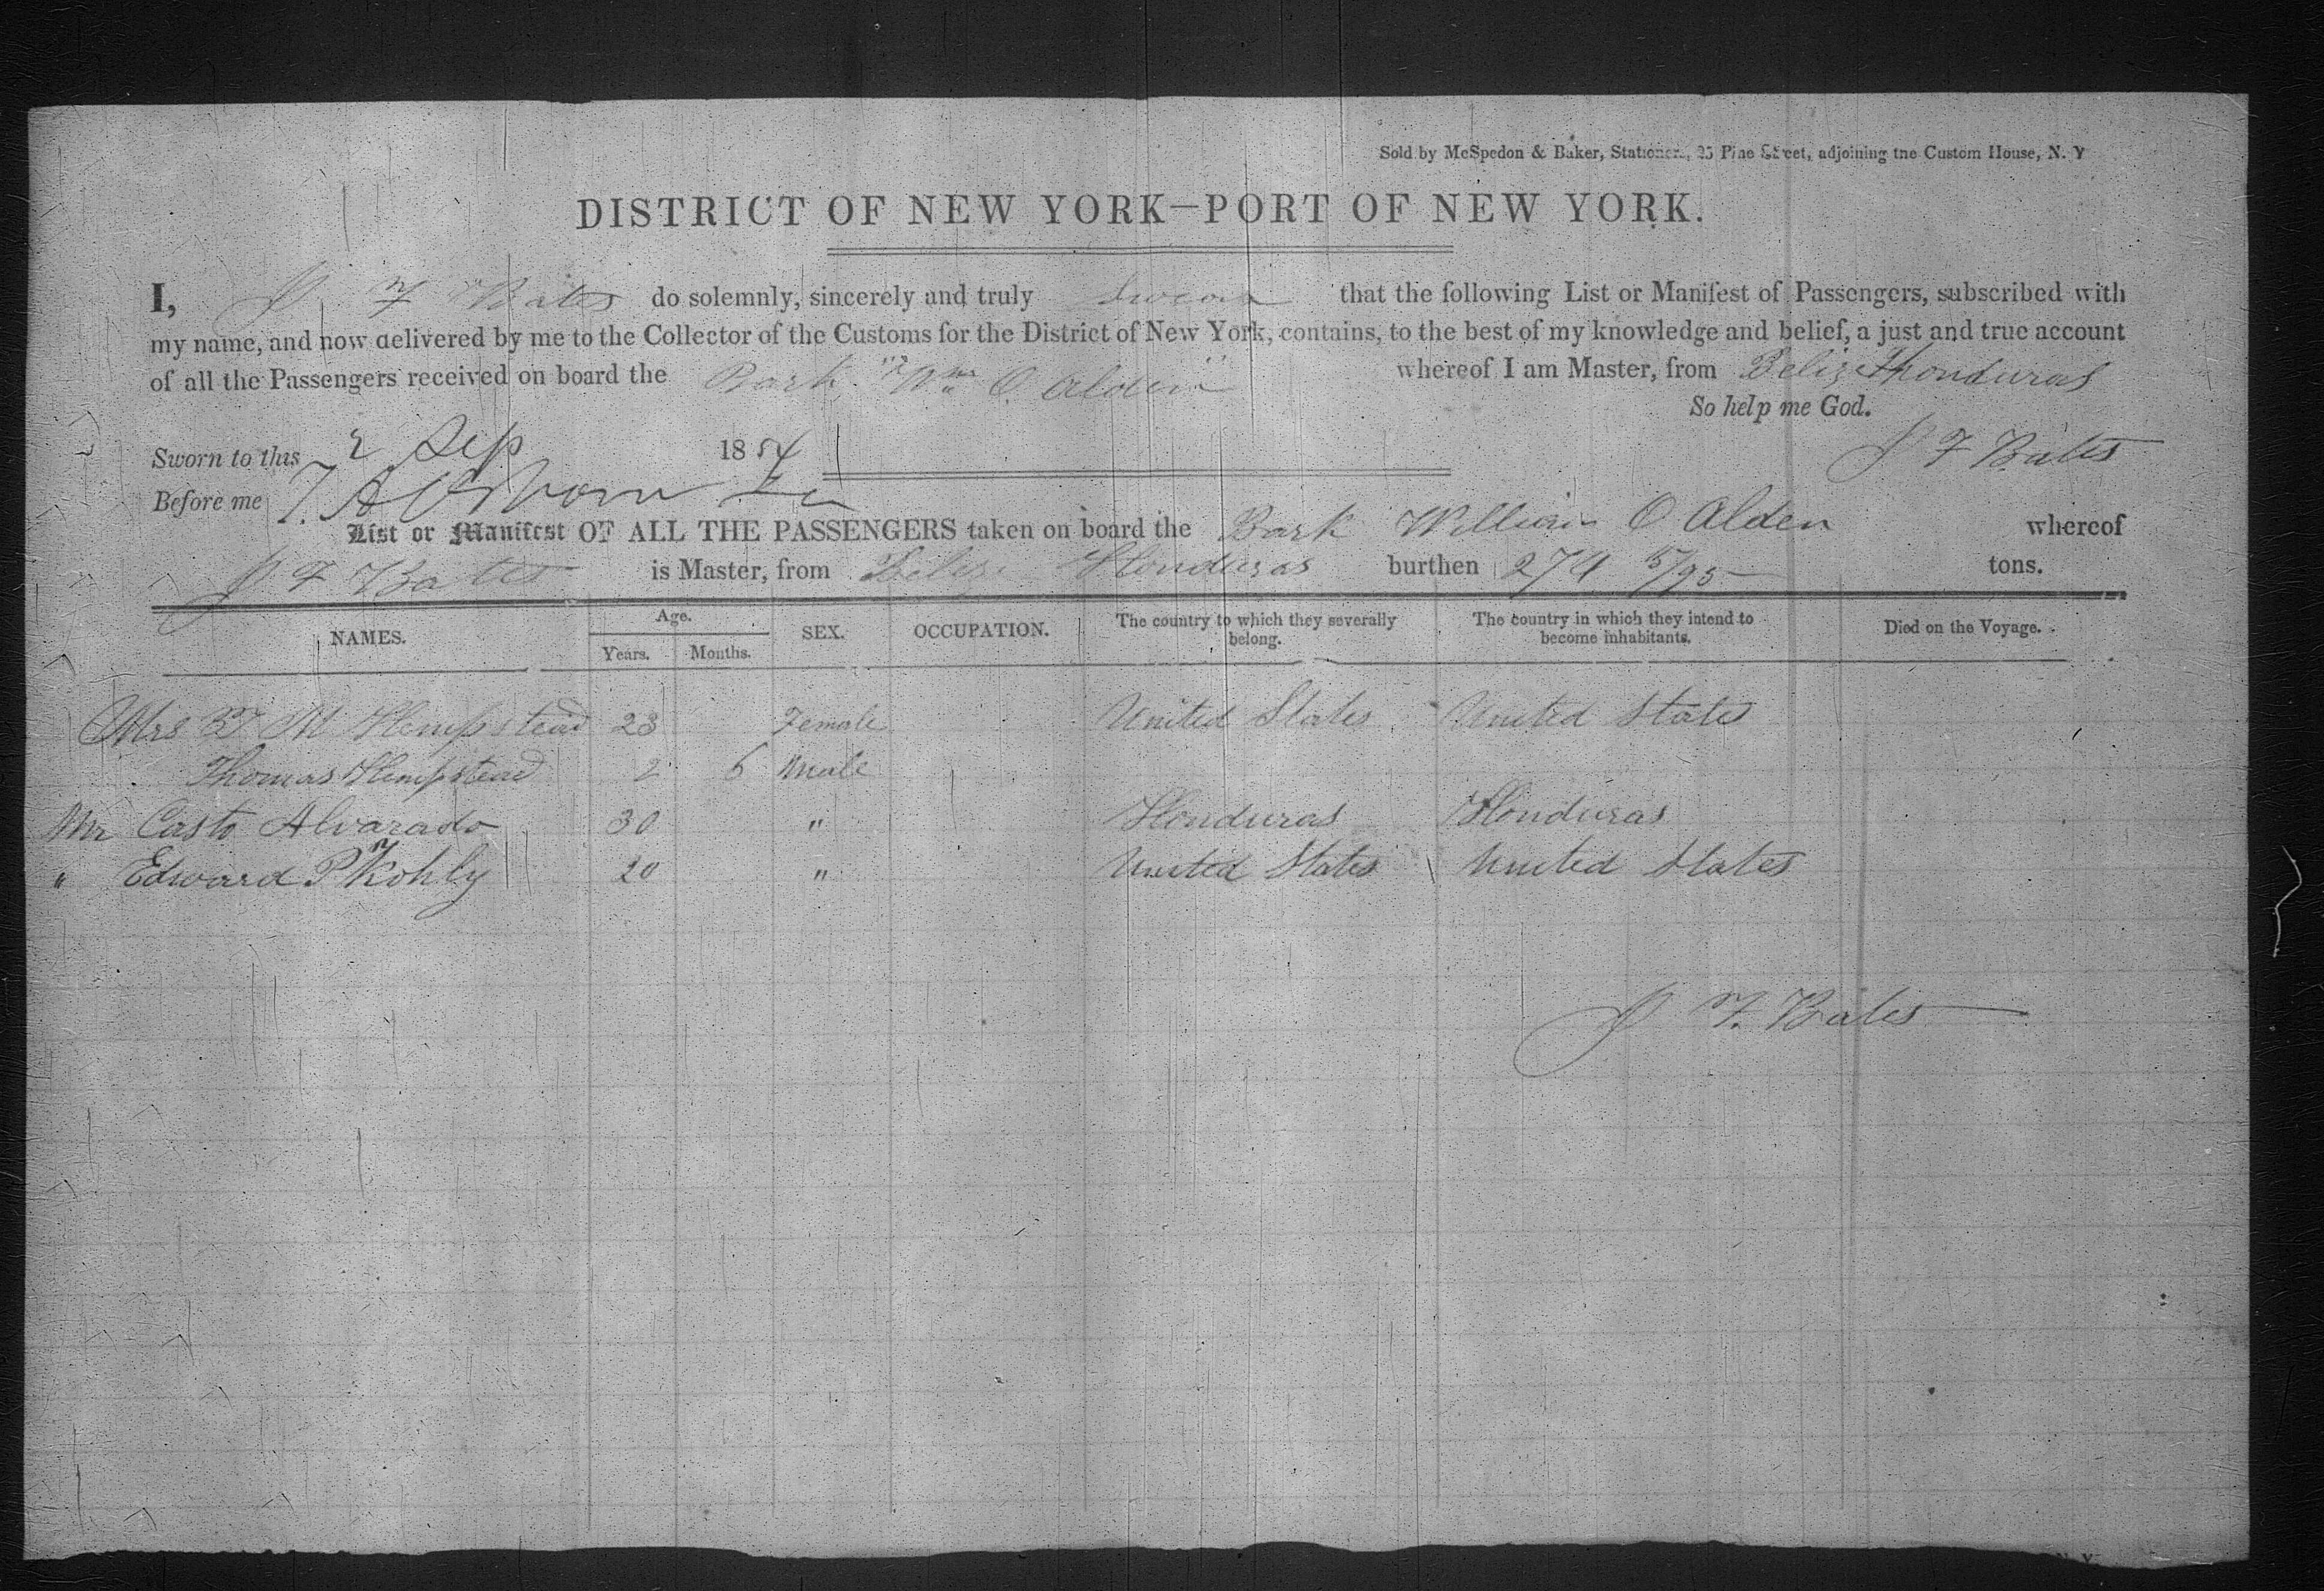 Sold by McSpedon & Baker, Stationers, 25 Pine Street, adjoining the Custom House, N. Y
DISTRICT OF NEW YORK—PORT OF NEW YORK.
I, J F Bates do solemnly, sincerely and truly swear that the following List or Manifest of Passengers, subscribed with
my name, and now delivered by me to the Collector of the Customs for the District of New York, contains, to the best of my knowledge and belief, a just and true account
of all the Passengers received on board the Bark "Wm O. Alden" whereof I am Master, from Belize Honduras
So help me God.
Sworn to this 2 Sep 1854 J F Bates
Before me
List or Manifest OF ALL THE PASSENGERS taken on board the Bark William O Alden whereof
J F Bates is Master, from Belize Honduras burthen 274 /95 tons.
NAMES. Age. SEX. OCCUPATION. The country to which they severally belong. The country in which they intend to become inhabitants. Died on the Voyage.
Years. Months.
Mrs M Hempstead 23 Female United States United States
Thomas Hempstead 2 6 Male
Mr Casto Alvarado 30 " Honduras Honduras
" Edward P Kohly 20 " United States United States
J F. Bates